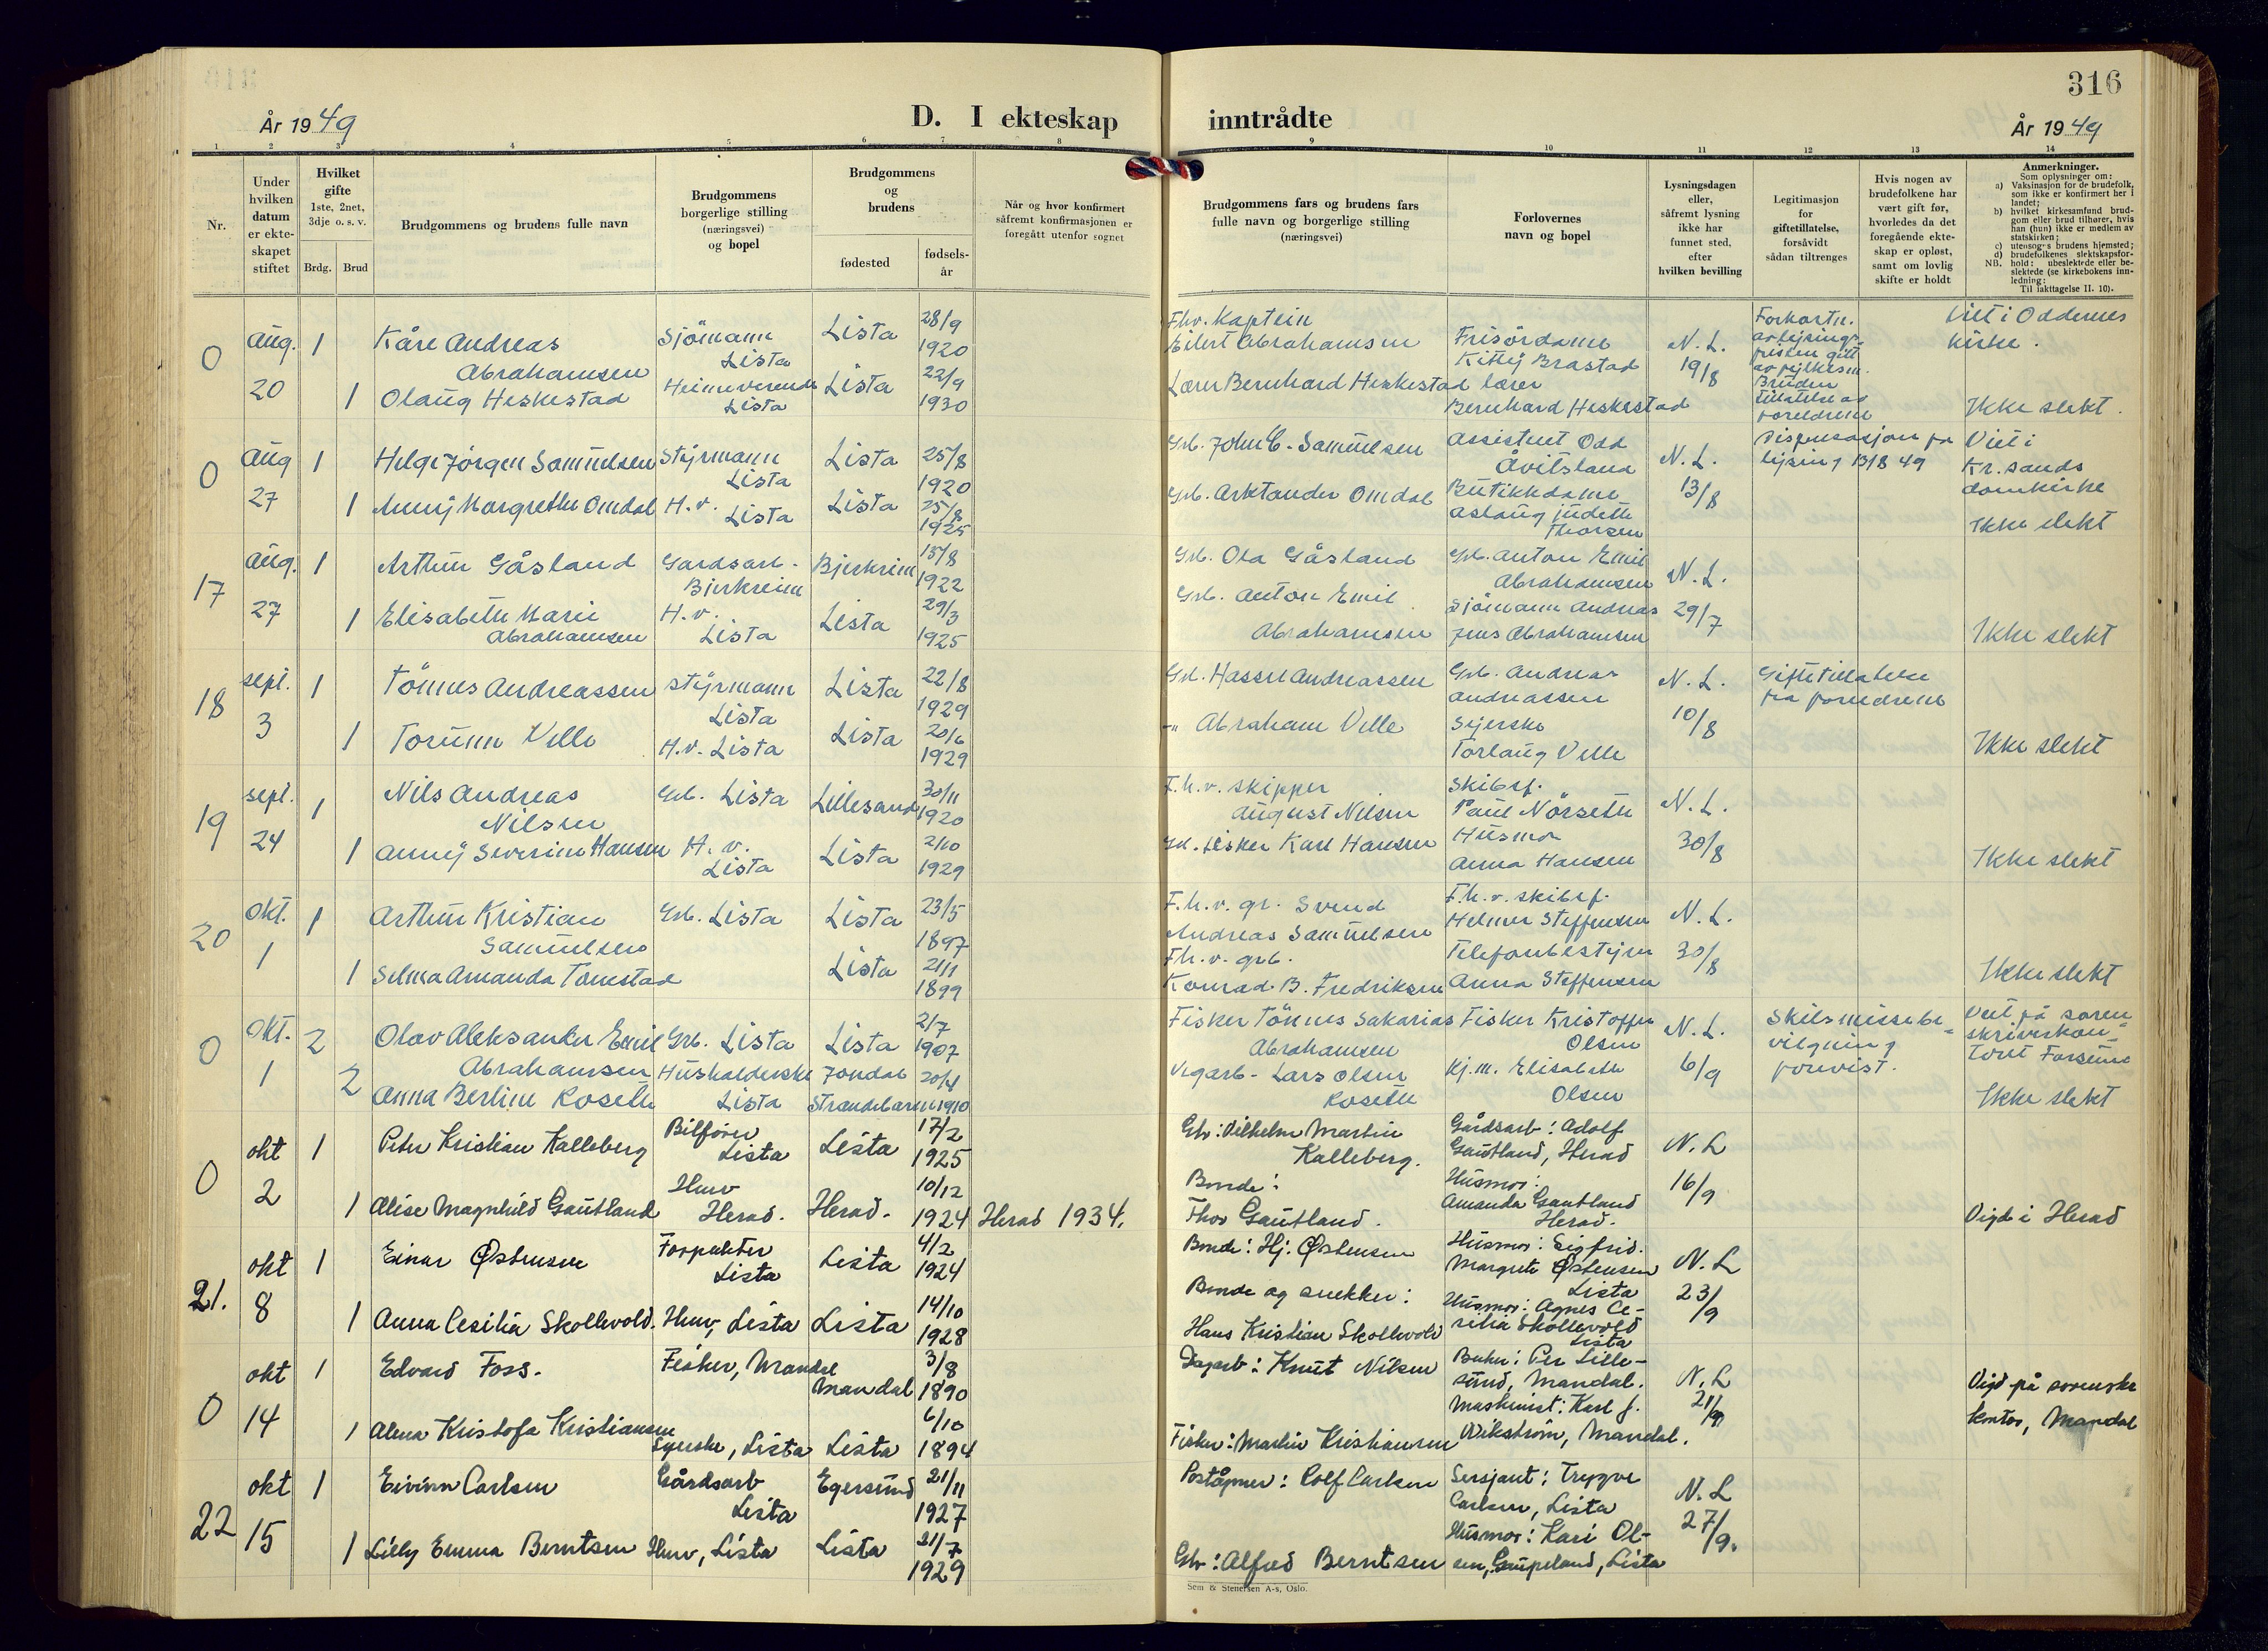 316
År 1949
D. I ekteskap inntrådte
År 1949
1 2 3 4 5 6 7 8 9 10 11 12 13 14
Nr.
Under
hvilken
datum
er ekte-
skapet
stiftet
Hvilket
gifte
1ste, 2net,
3dje o. s. v.
Brdg. Brud
Brudgommens og brudens fulle navn
Brudgommens
borgerlige stilling
(næringsvei)
og bopel
Brudgommens
og
brudens
fødested
fødsels-
år
Når og hvor konfirmert
såfremt konfirmasjonen er
foregått utenfor sognet
Brudgommens fars og brudens fars
fulle navn og borgerlige stilling
(næringsvei)
Forlovernes
navn og bopel
Lysningsdagen
eller,
såfremt lysning
ikke har
funnet sted,
efter
hvilken bevilling
Legitimasjon
for
giftetillatelse,
forsåvidt
sådan tiltrenges
Hvis nogen av
brudefolkene har
vært gift før,
hvorledes da det
foregående ekte-
skap er opløst,
samt om lovlig
skifte er holdt
Anmerkninger.
Som oplysninger om:
a) Vaksinasjon for de brudefolk,
som ikke er konfirmert her i
landet;
b) hvilket kirkesamfund brud-
gom eller brud tilhører, hvis
han (hun) ikke er medlem av
statskirken;
c) utensogns brudens hjemsted;
d) brudefolkenes slektskapsfor-
hold: ubeslektede eller be-
slektede (se kirkebokens inn-
ledning:
NB. Til iakttagelse II. 10).
0 Aug. 20
1 Kåre Andreas
Abrahamsen
Sjömann
Lista
Lista
28/9
1920
1 Olaug Heskestad
Heimeværende
Lista
Lista
22/9
1930
Fhv. Kaptein
Eilert Abrahamsen
Lærer Bernhard Heskestad
Frisördame
Kitty Brastad
lærer
Bernhard Heskestad
N. L.
19/8
Forkortn.
av lysings-
fristen gitt
av fylkesm.
Bruden
tillatelse av
foreldrene
Viet i Oddernes
kirke.
Ikke slekt.
0 Aug 27
1 Helge Jörgen Samuelsen
Styrmann
Lista
Lista
25/8
1920
1 Anny Margrethe Omdal
H.v.
Lista
Lista
25/8
1925
Grb. John C. Samuelsen
Grb. Arktander Omdal
Assistent Odd
Åvitsland
Butikkdame
Aslaug Judith
Thorsen
N. L.
13/8
Dispensasjon fra
lysing 13/8 49
Viet i
Kr.sands
domkirke
Ikke slekt
17 Aug. 27
1 Arthur Gåsland
Gardsarb.
Bjerkreim
Bjerkreim
15/8
1922
1 Elisabeth Marie
Abrahamsen
H.v.
Lista
Lista
29/3
1925
Grb. Ola Gåsland
Grb. Anton Emil
Abrahamsen
Grb. Anton Emil
Abrahamsen
Sjömann Andreas
Jens Abrahamsen
N. L.
29/7
Ikke slekt
18 sept. 3
1 Tönnes Andreassen
Styrmann
Lista
Lista
22/8
1929
1 Torunn Velle
H.v. Lista
Lista
20/6
1929
Grb. Hassel Andreassen
-"- Abraham Velle
Grb. Andreas
Andreassen
Syerske
Torlaug Velle
N. L.
10/8
Giftetillatelse
fra foreldrene
Ikke slekt
19 sept. 24
1 Nils Andreas
Nilsen
Grb. Lista
Lillesand
30/11
1920
1 Anny Severine Hansen
H. v.
Lista
Lista
2/10
1929
F.h.v. skipper
August Nilsen
Grb. fisker Karl Hansen
Skibsf.
Paul Nörseth
Husmor
Anna Hansen
N. L.
30/8
Ikke slekt
20 Okt. 1
1 Arthur Kristian
Samuelsen
Grb. Lista
Lista
23/5
1897
1 Selma Amanda Tomstad
Lista
21/1
1899
F.h.v. gr. Svend
Andreas Samuelsen
Fh.v. grb.
Konrad B. Fredriksen
F.h.v. skibsf.
Helmer Steffensen
Telefonbestyrer
Anna Steffensen
N. L.
30/8
Ikke slekt
0 Okt. 1
2 Olav Aleksander Emil
Abrahamsen
Grb. Lista
Lista
2/7
1907
2 Anna Berline Koseth
Husholderske
Lista
Jondal
Strandebarm
20/4
1910
Fisker Tönnes Sakarias
Abrahamsen
Vegarb. Lars Olsen
Koseth
Fisker Kristoffer
Olsen
Kj.m. Elisabeth
Olsen
N. L.
6/9
Skilsmissebe-
vilgning
forevist.
Viet på soren-
skriverkon-
toret Farsund
Ikke slekt
0 okt 2
1 Peter Kristian Kalleberg
Bilfører
Lista
Lista
17/2
1925
1 Alise Magnhild Gautland
Husv
Herad.
Herad.
10/12
1924
Herad 1934.
Gbr: Vilhelm Martin
Kalleberg.
Bonde:
Thor Gautland.
Gårdsarb: Adolf
Gautland, Herad
Husmor:
Amanda Gautland
Herad.
N. L
16/9
Vigd i Herad
21. okt 8
1 Einar Østensen
Forpakter
Lista
Lista
4/2
1924
1 Anna Cesilia Skollevold.
Husv, Lista
Lista
14/10
1928
Bonde: Hj. Østensen
Bonde og snekker:
Hans Kristian Skollevold
Husmor: Sigfrid.
Margrete Østensen
Lista
Husmor: Agnes Ce-
silia Skollevold
Lista
N. L
23/9
0 okt 14
1 Edvard Foss.
Fisker, Mandal
Mandal
3/8
1890
1 Alma Kristofa Kristiansen
Syerske, Lista
Lista
6/10
1894
Dagarb: Knut Nilsen
Fisker: Martin Kristiansen
Baker: Per Lille-
sund, Mandal.
Maskinist: Karl J.
Wikström, Mandal.
N. L
21/9
Vigd på sorenskr
kontor, Mandal
22 okt 15
1 Eivinn Carlsen
Gårdsarb
Lista
Egersund
21/11
1927
1 Lilly Emma Berntsen
Husv, Lista
Lista
21/7
1929
Poståpner: Rolf Carlsen
Gbr: Alfred Berntsen
Sersjant: Trygve
Carlsen, Lista
Husmor: Kari Ol-
sen, Gaupeland, Lista
N. L
27/9.
Sem & Stenersen A-s, Oslo.